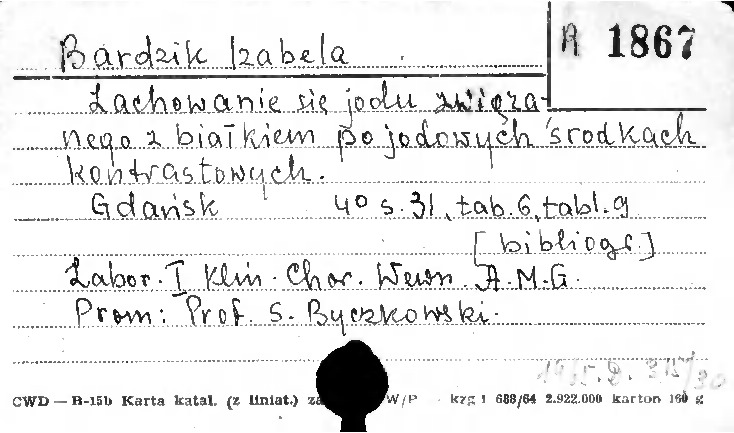 A 1867
Bardzik Izabela
Zachowanie się jodu związa-
nego z białkiem po jodowych środkach
kontrastowych.
Gdańsk 4° s. 31, tab. 6, tabl. 9
[bibliogr.]
Labor. I Klin. Chor. Wewn. A.M.G.
Prom: Prof. S. Byczkowski.
CWD — B-15b Karta katal. (z liniat.) W/P kzg 1 688/64 2.922.000 karton 160 g